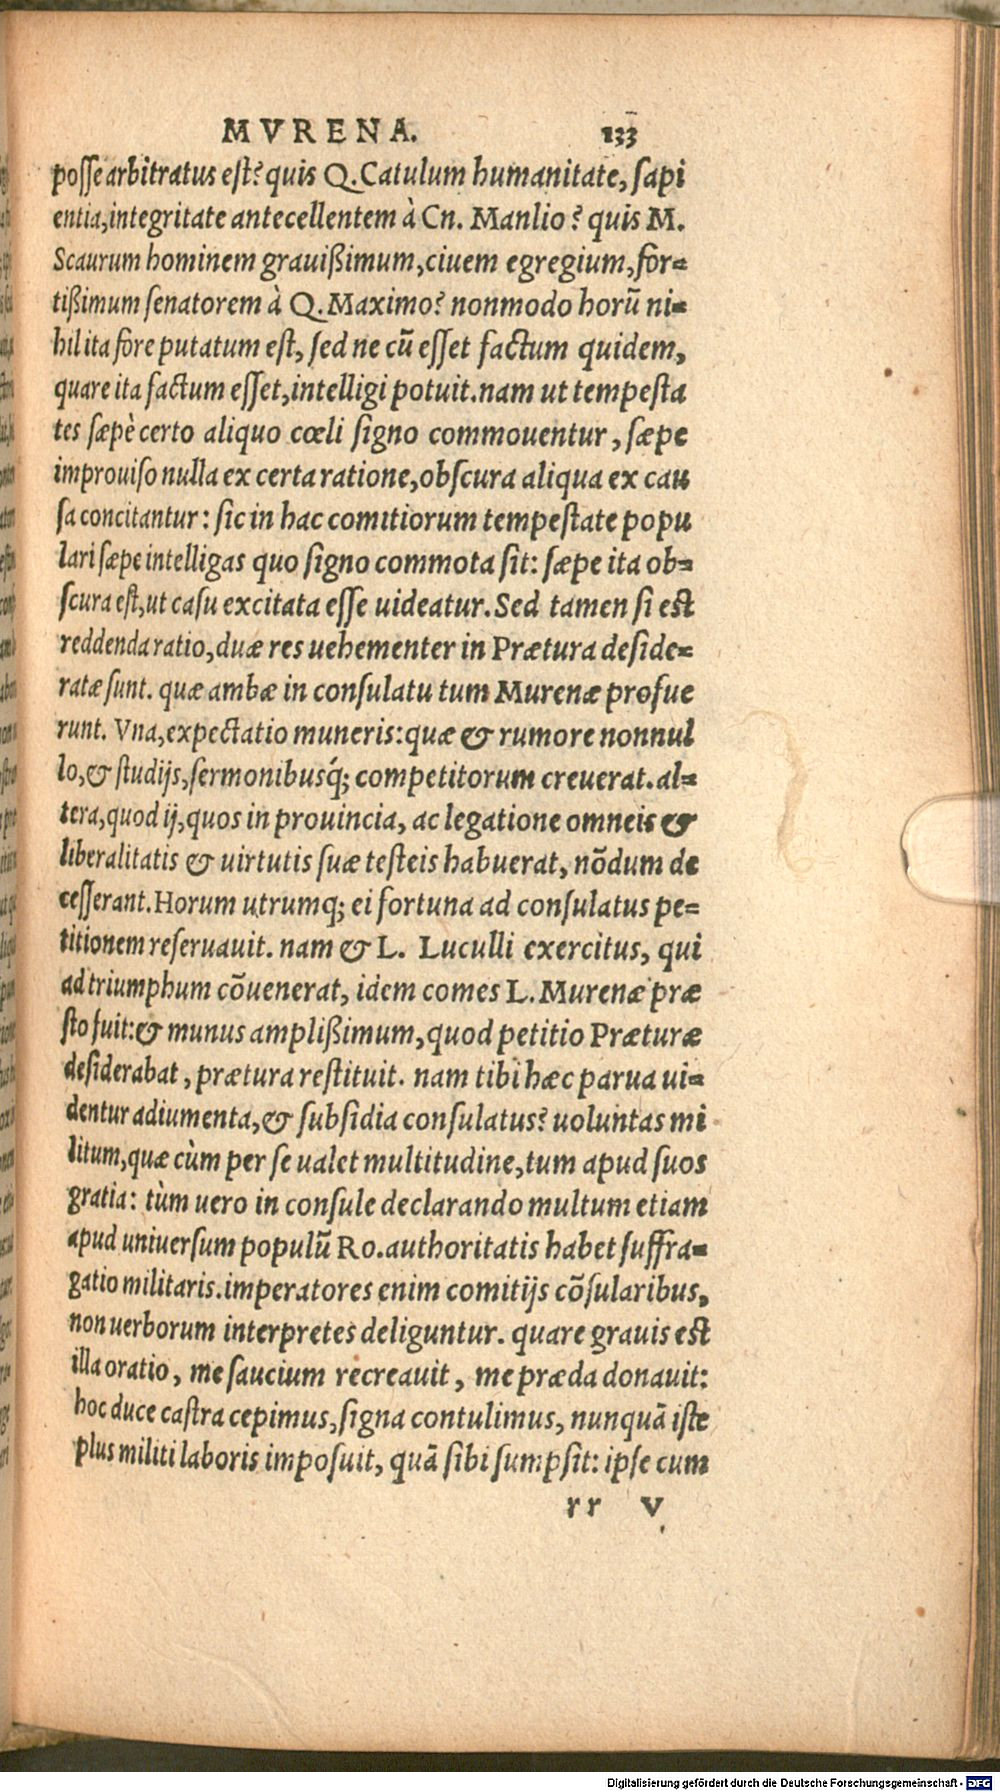 MVRENA. 133
posse arbitratus est? quis Q. Catulum humanitate, sapi
entia, integritate antecellentem à Cn. Manlio? quis M.
Scaurum hominem grauißimum, ciuem egregium, for=
tißimum senatorem à Q. Maximo? nonmodo horũ ni=
hil ita fore putatum est, sed ne cũ esset factum quidem,
quare ita factum esset, intelligi potuit. nam ut tempesta
tes sæpè certo aliquo cœli signo commouentur, sæpe
improuiso nulla ex certa ratione, obscura aliqua ex cau
sa concitantur: sic in hac comitiorum tempestate popu
lari sæpe intelligas quo signo commota sit: sæpe ita ob=
scura est, ut casu excitata esse uideatur. Sed tamen si est
reddenda ratio, duæ res uehementer in Prætura deside=
ratæ sunt. quæ ambæ in consulatu tum Murenæ profue
runt. Vna, expectatio muneris: quæ & rumore nonnul
lo, & studijs, sermonibusq́; competitorum creuerat. al=
tera, quod ij, quos in prouincia, ac legatione omneis &
liberalitatis & uirtutis suæ testeis habuerat, nõdum de
cesserant. Horum utrumq; ei fortuna ad consulatus pe=
titionem reseruauit. nam & L. Luculli exercitus, qui
ad triumphum cõuenerat, idem comes L. Murenæ præ
sto fuit: & munus amplißimum, quod petitio Præturæ
desiderabat, prætura restituit. nam tibi hæc parua ui=
dentur adiumenta, & subsidia consulatus? uoluntas mi
litum, quæ cùm per se ualet multitudine, tum apud suos
gratia: tùm uero in consule declarando multum etiam
apud uniuersum populũ Ro. authoritatis habet suffra=
gatio militaris. imperatores enim comitijs cõsularibus,
non uerborum interpretes deliguntur. quare grauis est
illa oratio, me saucium recreauit, me præda donauit:
hoc duce castra cepimus, signa contulimus, nunquã iste
plus militi laboris imposuit, quã sibi sumpsit: ipse cum
rr v
Digitalisierung gefördert durch die Deutsche Forschungsgemeinschaft - DFG